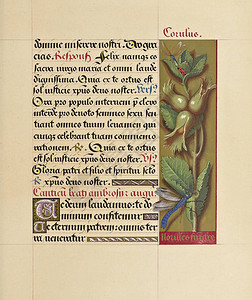 Corulus.
domine im secure nostri. Deo gra
cias. Respons. Felix namqȝ es
sacra virgo maria et omni laude
dignissima. Quia ex te ortus est
sol iusticie xpūs deus noster. Vers.
Ora pro populo interueni pro clero
intercede pro deuoto femineo sexu sen
tiant omnes tuum leuamen qui
cunqȝ celebrant tuam commemo
rationem. R. Quia ex te ortus
est sol iusticie xpūs deus noster. Vs
Gloria patri et filio et spiritui scto
R. xpūs deus noster.
Canticū beati ambrosii et augus
Te deum laudamus: te do
minum confitemur
Te eternum patrem: omnis ter
ra veneratur